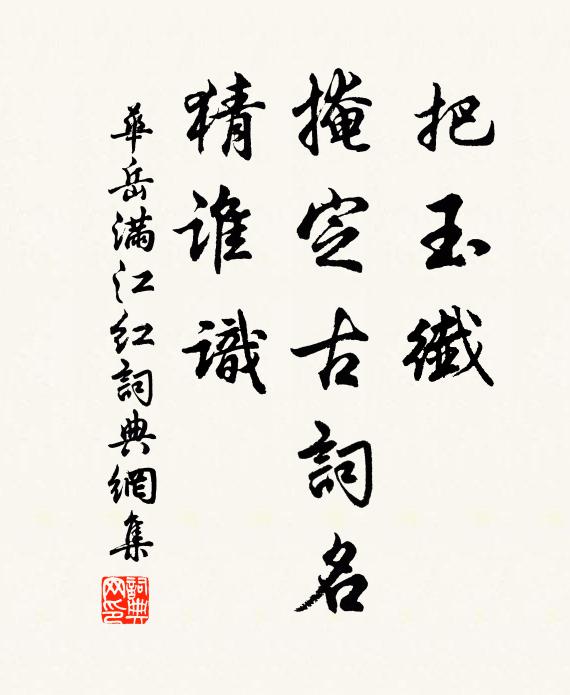 把玉纖
掩定古詞名
猜誰識
華岳滿江紅詞典網集
詞典网印